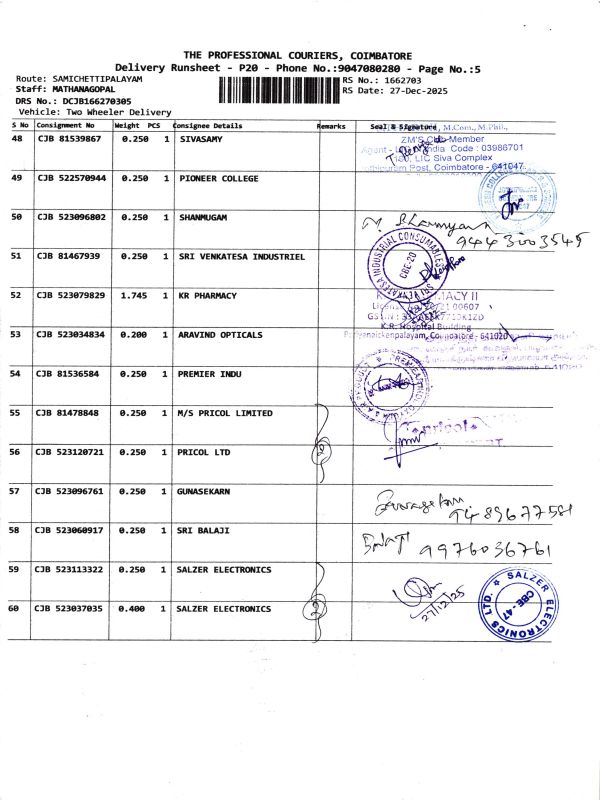 THE PROFESSIONAL COURIERS, COIMBATORE
Delivery Runsheet - P20 - Phone No.:9047080280 - Page No.:5
Route: SAMICHETTIPALAYAM RS No.: 1662703
Staff: MATHANAGOPAL RS Date: 27-Dec-2025
DRS No.: DCJB166270305
Vehicle: Two Wheeler Delivery
S No Consignment No Weight PCS Consignee Details Remarks Seal & Signature
M.Com., M.Phil.,
48 CJB 81539867 0.250 1 SIVASAMY ZM'S Club Member
Agent - India Code : 03986701
LIC Siva Complex
Post, Coimbatore - 641047
49 CJB 522570944 0.250 1 PIONEER COLLEGE
50 CJB 523096802 0.250 1 SHANMUGAM
9443003545
51 CJB 81467939 0.250 1 SRI VENKATESA INDUSTRIEL SRI VENKATESA INDUSTRIAL CONSUMABLES CBE-20
52 CJB 523079829 1.745 1 KR PHARMACY
MACY II
00607
K.R. Hospital Building
53 CJB 523034834 0.200 1 ARAVIND OPTICALS
Periyanaickenpalayam, Coimbatore - 641020
54 CJB 81536584 0.250 1 PREMIER INDU
55 CJB 81478848 0.250 1 M/S PRICOL LIMITED
pricol
56 CJB 523120721 0.250 1 PRICOL LTD 2
57 CJB 523096761 0.250 1 GUNASEKARN
9489677581
58 CJB 523060917 0.250 1 SRI BALAJI
9976036761
59 CJB 523113322 0.250 1 SALZER ELECTRONICS
27/12/25
SALZER ELECTRONICS LTD. CBE - 47
60 CJB 523037035 0.400 1 SALZER ELECTRONICS 2